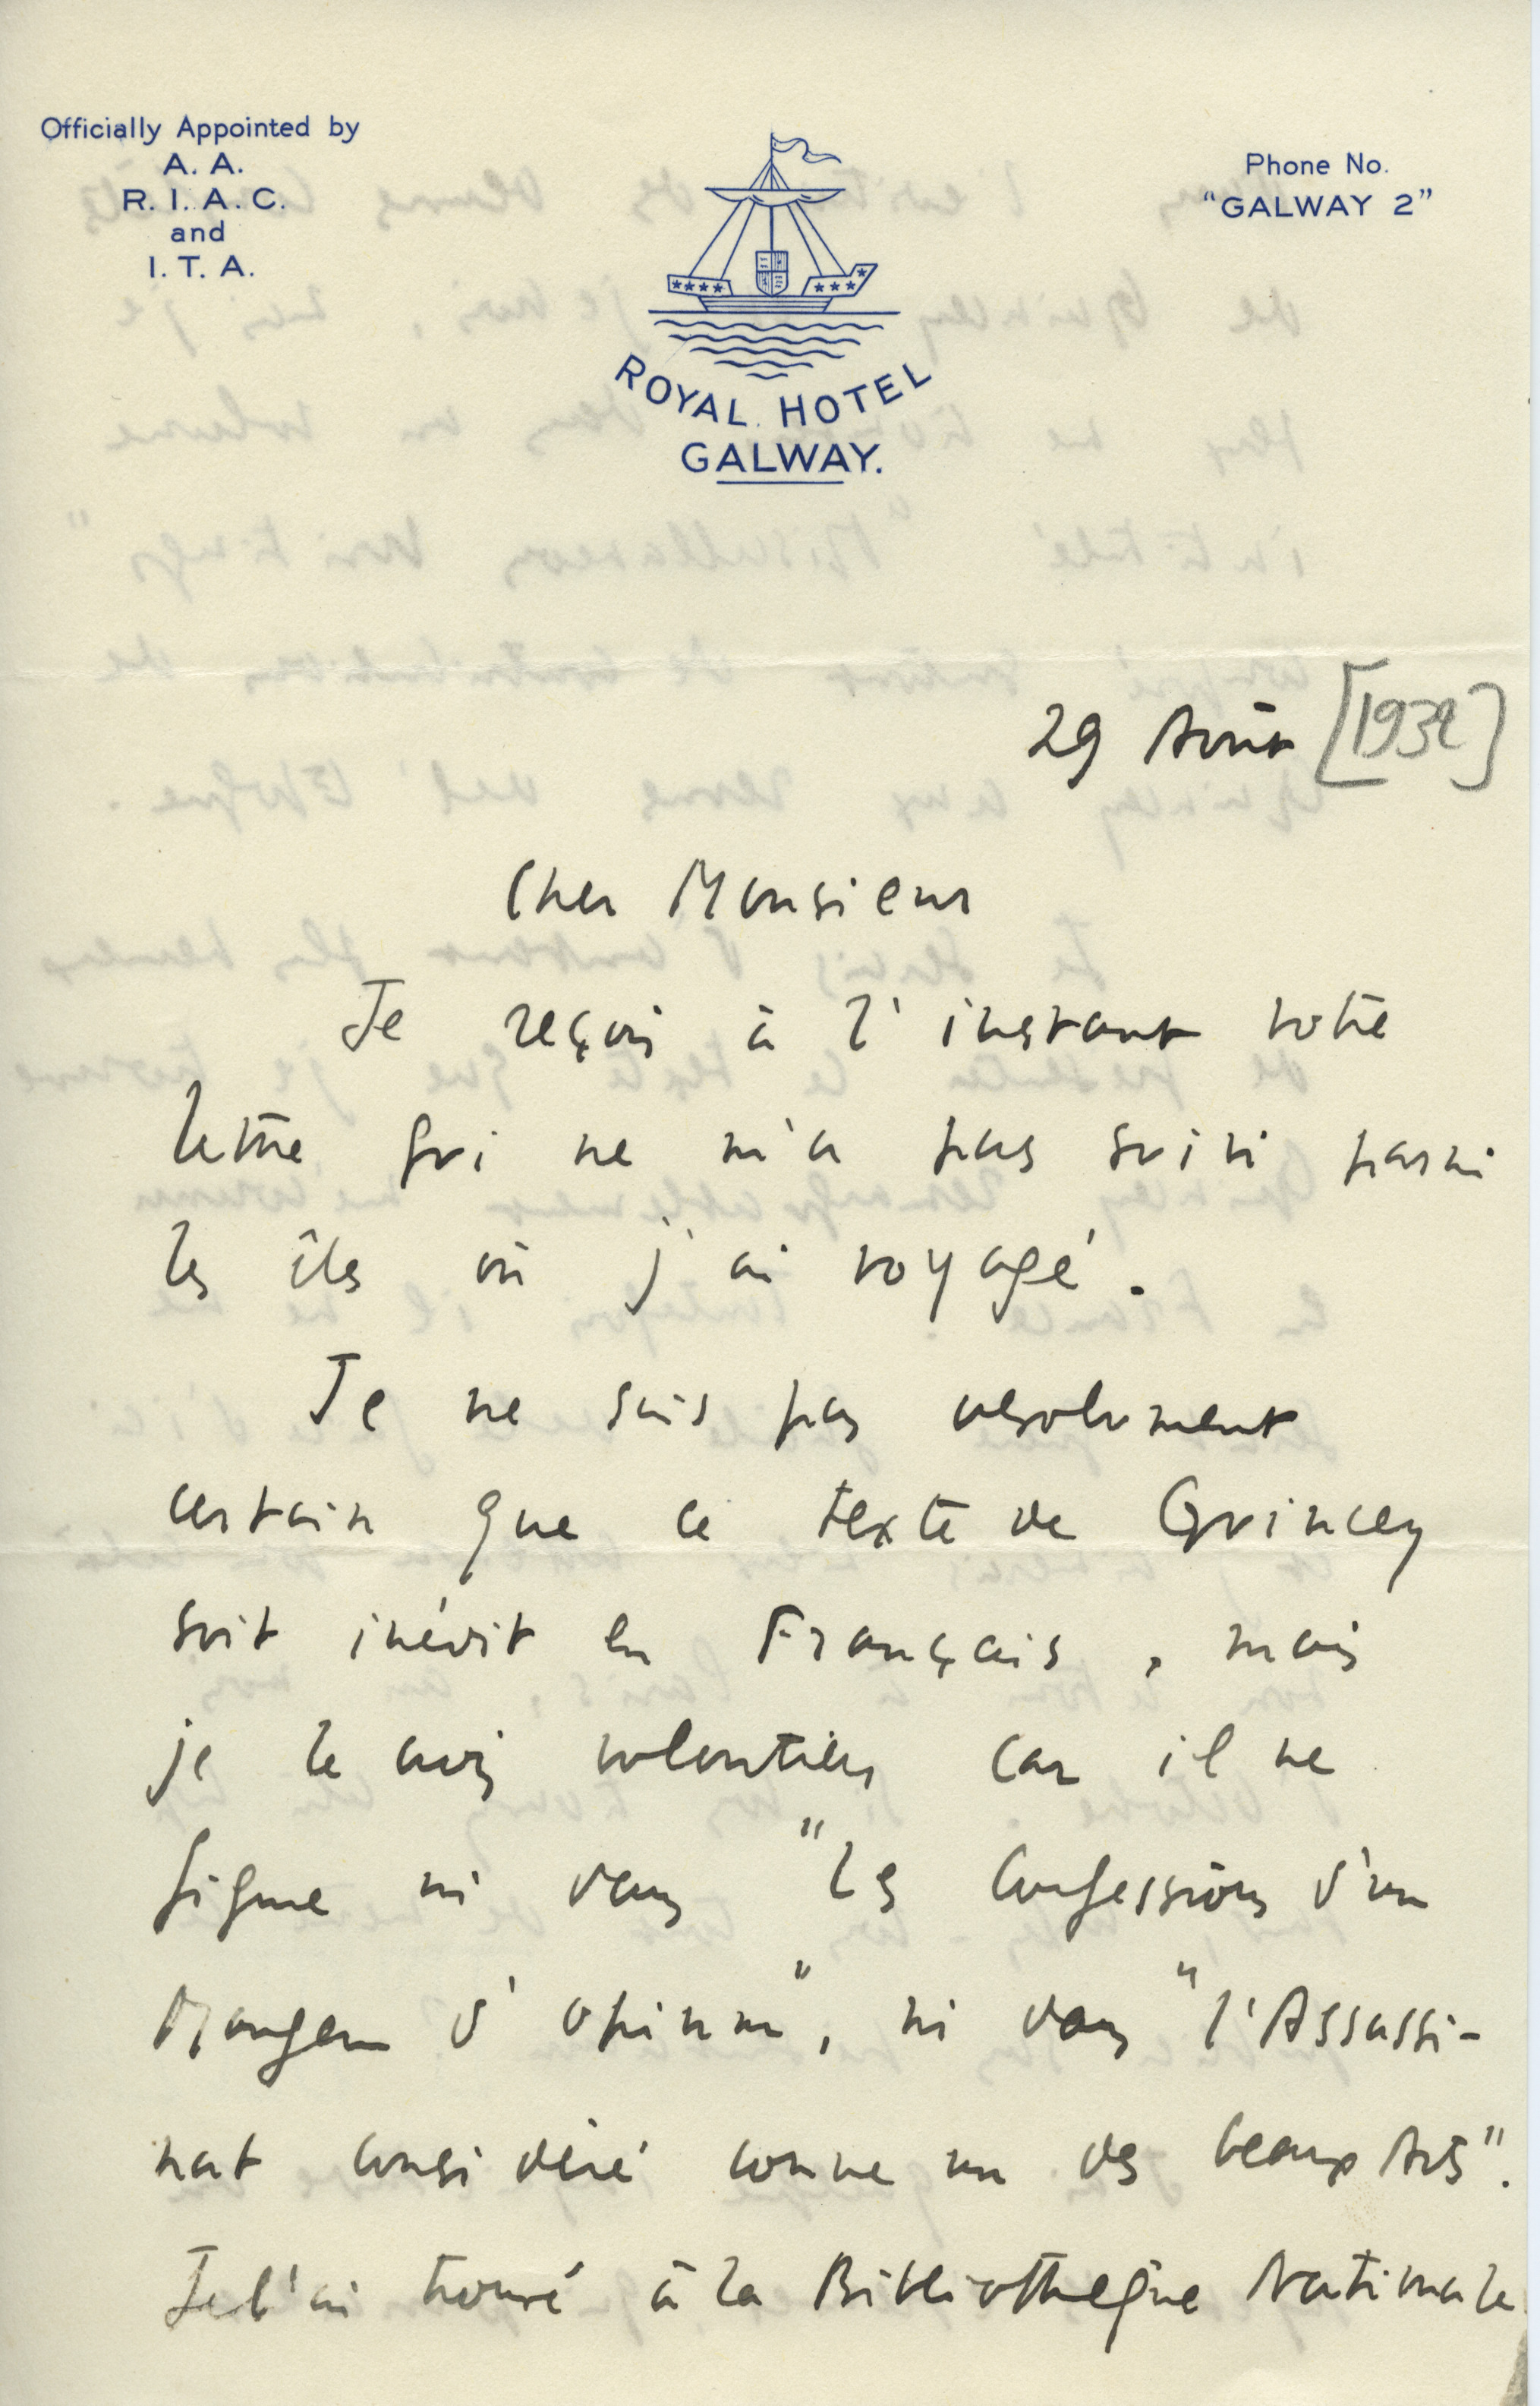 Officially Appointed by
A. A.
R. I. A. C.
and
I. T. A.
Phone No.
"GALWAY 2"
ROYAL HOTEL
GALWAY.
29 Août [1932]
Cher Monsieur
Je reçois à l'instant votre
lettre qui ne m'a pas suivi parmi
les îles où j'ai voyagé.
Je ne suis pas absolument
certain que ce texte de Quincey
soit inédit en Français, mais
je le crois volontiers car il ne
figure ni dans "Les Confessions d'un
Mangeur d'opium", ni dans "l'Assassi-
nat considéré comme un des beaux Arts".
Je l'ai trouvé à la Bibliothèque Nationale